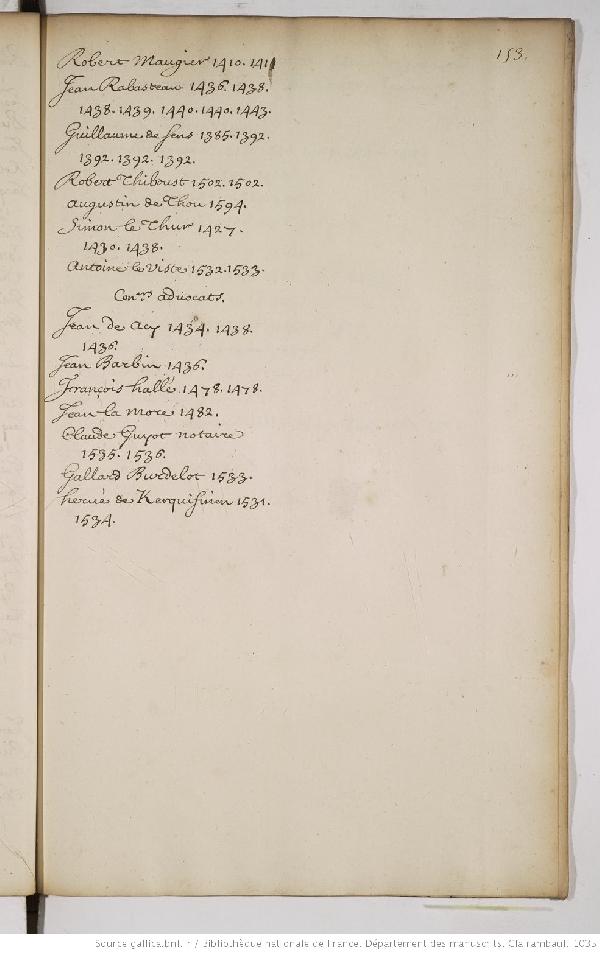 153.
Robert Maugier 1410. 1411
Jean Rabasteau 1436. 1438.
1438. 1439. 1440. 1440. 1443.
Guillaume de Sens 1385. 1392.
1392. 1392. 1392.
Robert Thiboust 1502. 1502.
augustin de Thou 1594.
Simon le Thur 1427.
1430. 1438.
Antoine le Viste 1532. 1533.
Con.ers advocats.
Jean de Acy 1434. 1438.
1436.
Jean Barbin 1436.
François hallé 1478. 1478.
Jean la more 1482.
Claude Guyot notaire
1535. 1536.
Gallard Burdelot 1533.
herué de Kerquisinen 1531.
1534.
Source gallica.bnf.fr / Bibliothèque nationale de France. Département des manuscrits. Clairambault 1035